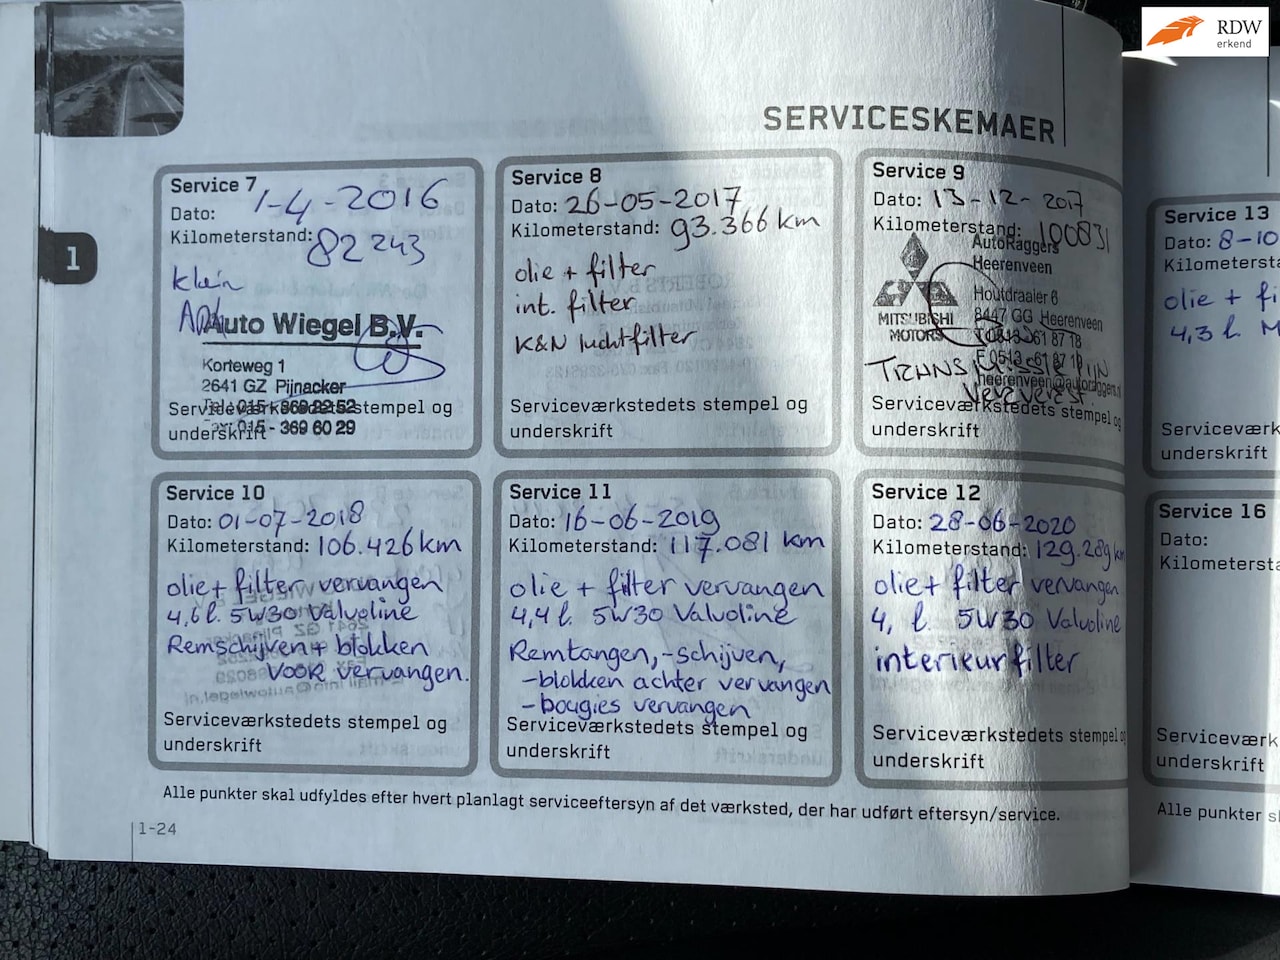 RDW
erkend
SERVICESKEMAER
1
Service 7
Dato: 1-4-2016
Kilometerstand: 82243
klein
APK
Auto Wiegel B.V.
Korteweg 1
2641 GZ Pijnacker
Tel: 015-369 22 52
Fax: 015 - 369 60 29
Serviceværkstedets stempel og
underskrift
Service 8
Dato: 26-05-2017
Kilometerstand: 93.366 km
olie + filter
int. filter
K&N luchtfilter
Serviceværkstedets stempel og
underskrift
Service 9
Dato: 13-12-2017
Kilometerstand: 100831
AutoRaggers
Heerenveen
Houtdraaier 6
8447 GG Heerenveen
T 0513 61 87 18
F 0513 61 87 19
heerenveen@autoraggers.nl
MITSUBISHI
MOTORS
Serviceværkstedets stempel og
underskrift
Service 10
Dato: 01-07-2018
Kilometerstand: 106.426km
olie + filter vervangen
4,6 l. 5W30 Valvoline
Remschijven + blokken
voor vervangen.
Serviceværkstedets stempel og
underskrift
Service 11
Dato: 16-06-2019
Kilometerstand: 117.081 km
olie + filter vervangen
4,4 l. 5W30 Valvoline
Remtangen, -schijven,
-blokken achter vervangen
-bougies vervangen
Serviceværkstedets stempel og
underskrift
Service 12
Dato: 28-06-2020
Kilometerstand: 129.289 km
olie + filter vervangen
4, l. 5W30 Valvoline
interieurfilter
Serviceværkstedets stempel og
underskrift
Alle punkter skal udfyldes efter hvert planlagt serviceeftersyn af det værksted, der har udført eftersyn/service.
1-24
Service 13
Dato: 8-10
Kilometersta
olie + fi
4,3 l. M
Serviceværk
underskrift
Service 16
Dato:
Kilometersta
Serviceværk
underskrift
Alle punkter s